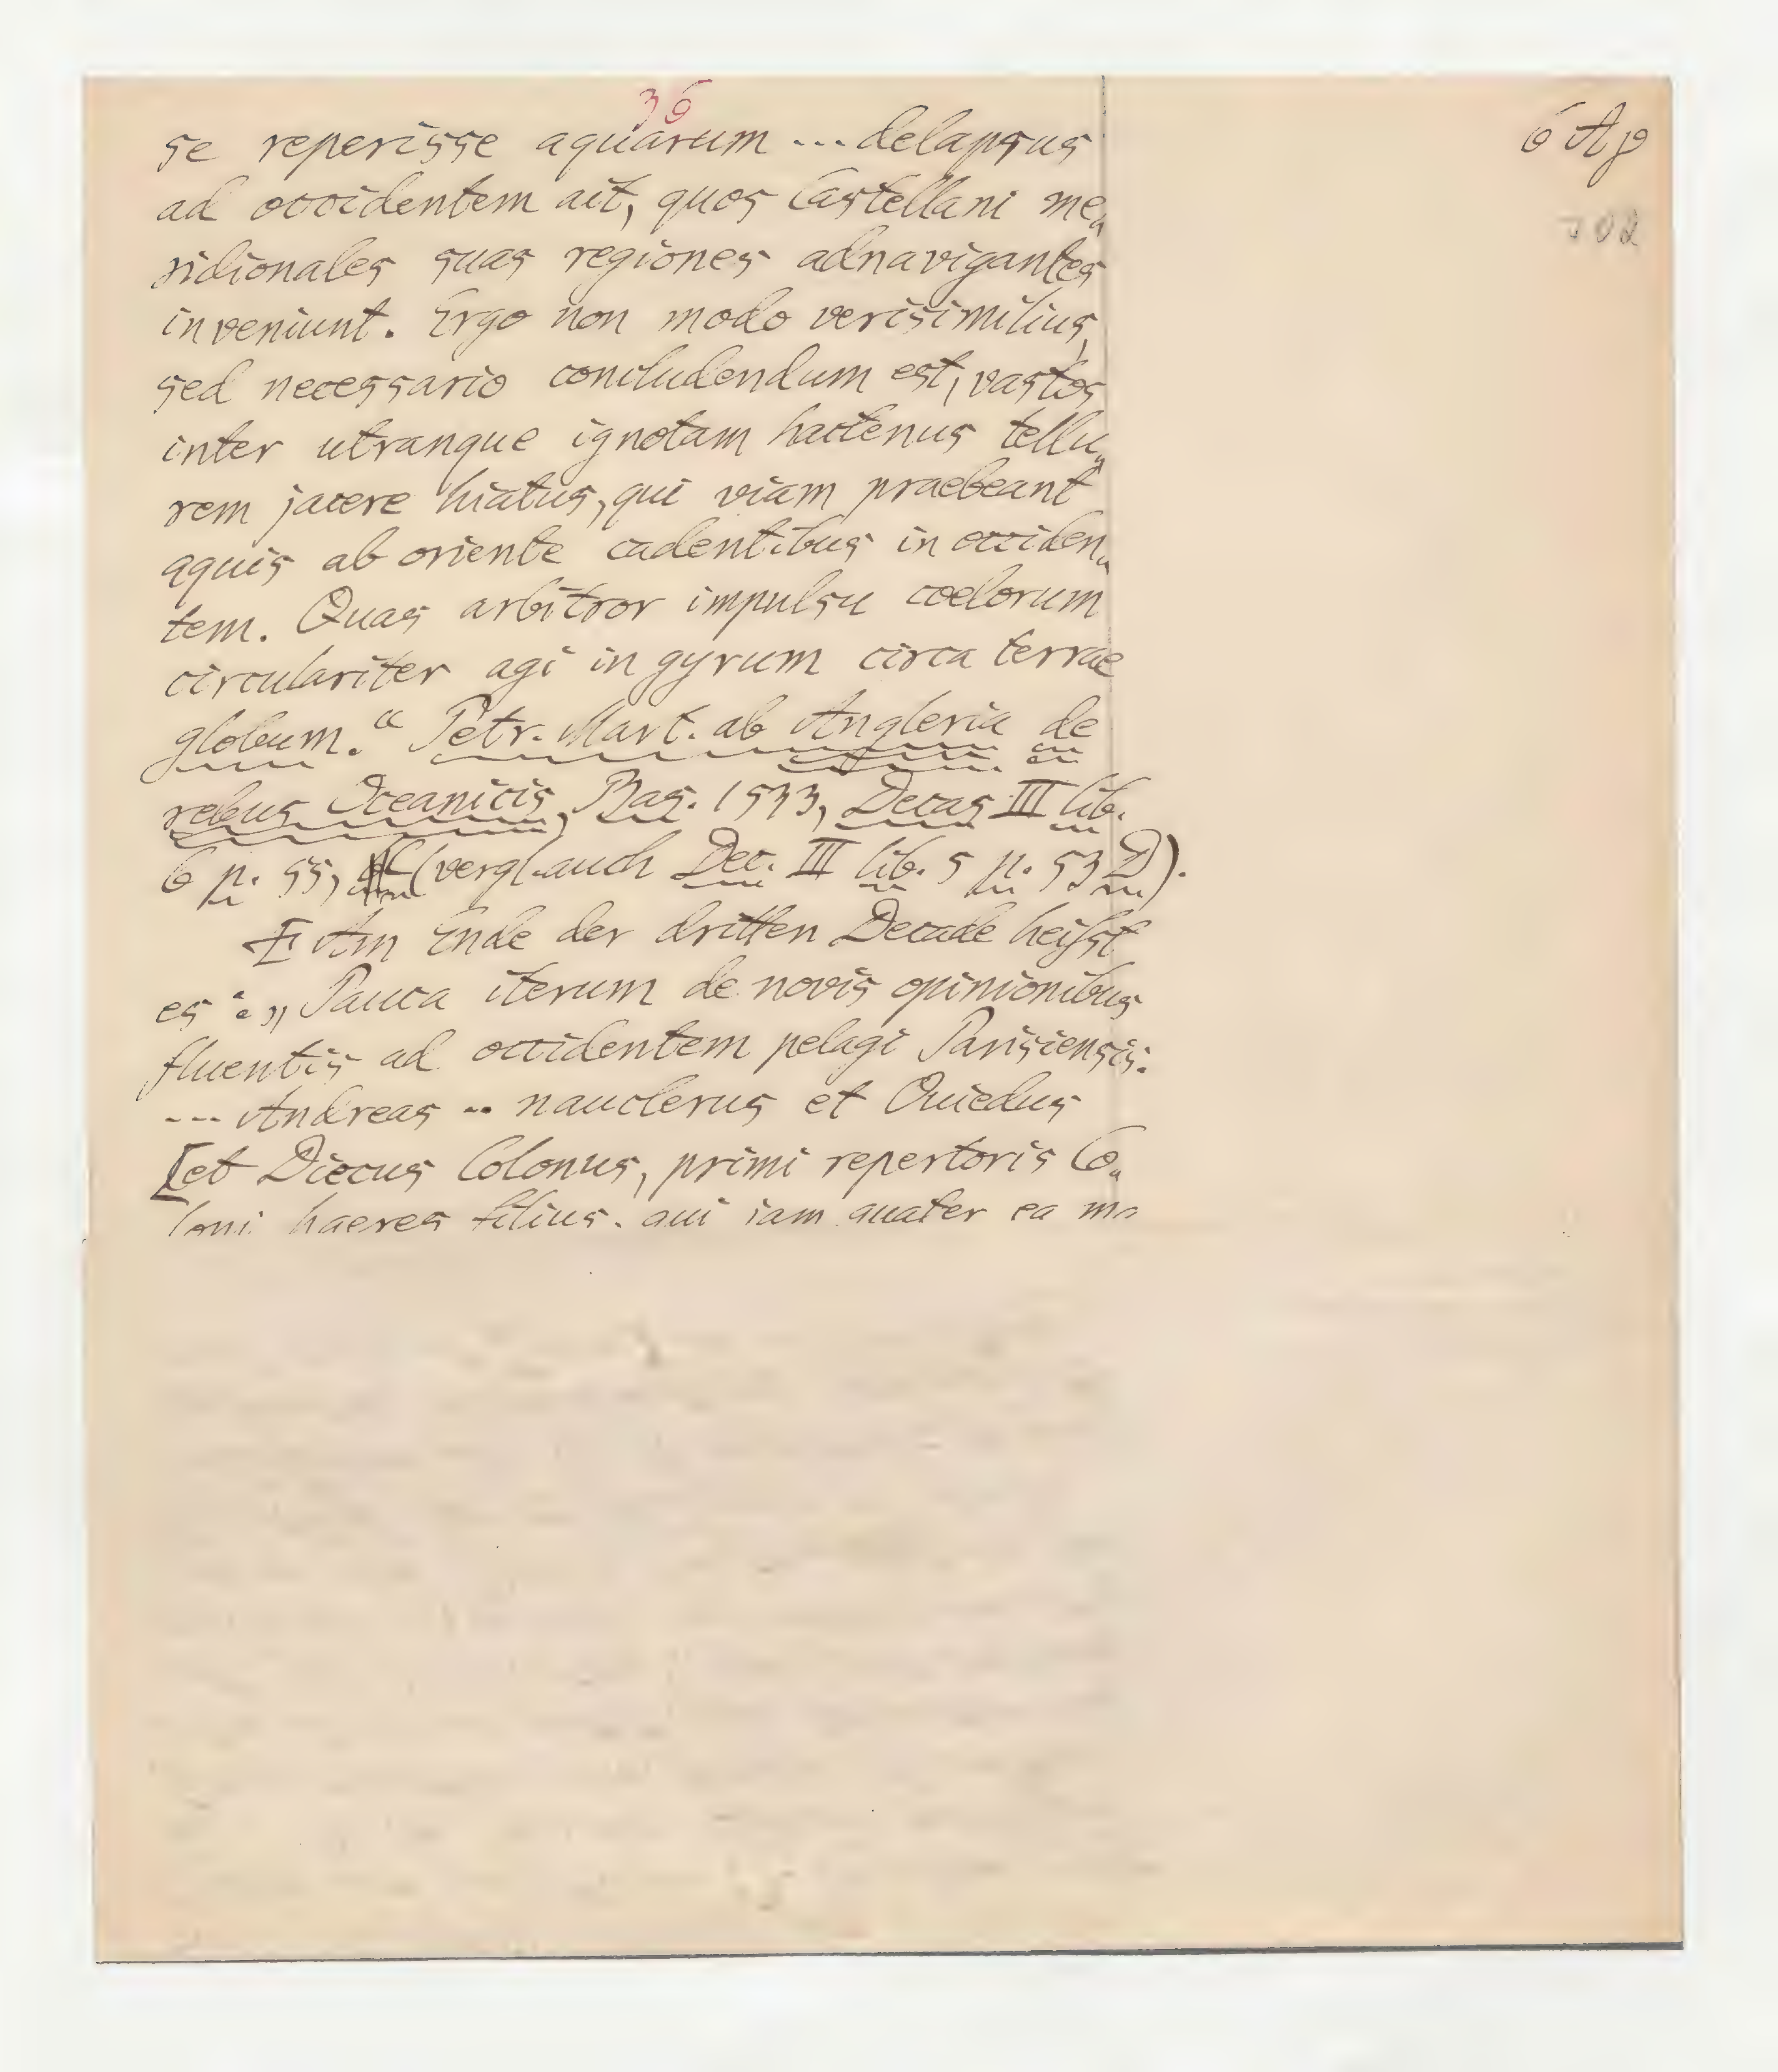 36
6 Ap
se reperisse aquarum ... delapsus
ad occidentem ait, quos Castellani me„
ridionales suas regiones adnavigantes
inveniunt. Ergo non modo verisimilius,
sed necessario concludendum est, vastos
inter utranque ignotam hactenus tellu„
rem jacere hiatus, qui viam praebeant
aquis ab oriente cadentibus in occiden„
tem. Quas arbitror impulsu coelorum
circulariter agi in gyrum circa terrae
globum.“ Petr. Mart. ab Angleria de
rebus Oceanicis, Bas. 1533, Decas III lib.
6 p. 55, (vergl. auch Dec. III lib. 5 p. 53 D).
[Am Ende der dritten Decade heißt
es: „Pauca iterum de novis opinionibus
fluentis ad occidentem pelagi Parisiensis.
--- Andreas .. nauclerus et Ouiedus
[et Diecus Colonus, primi repertoris Co„
loni haeres filius, qui iam quater ea ma